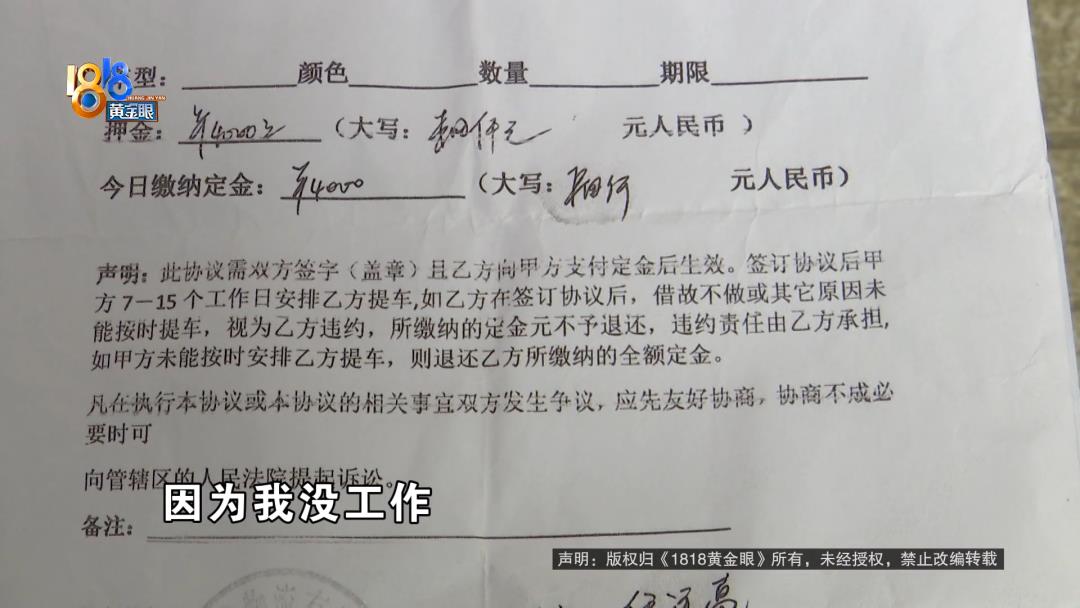 型：________颜色________数量________期限________
1818
黄金眼
押金：¥4000元（大写：肆仟元 元人民币 ）
今日缴纳定金：¥4000（大写：肆仟 元人民币）
声明：此协议需双方签字（盖章）且乙方向甲方支付定金后生效。签订协议后甲
方7—15个工作日安排乙方提车,如乙方在签订协议后，借故不做或其它原因未
能按时提车，视为乙方违约，所缴纳的定金元不予退还，违约责任由乙方承担,
如甲方未能按时安排乙方提车，则退还乙方所缴纳的全额定金。
凡在执行本协议或本协议的相关事宜双方发生争议，应先友好协商，协商不成必
要时可
向管辖区的人民法院提起诉讼。
因为我没工作
备注：
声明：版权归《1818黄金眼》所有，未经授权，禁止改编转载